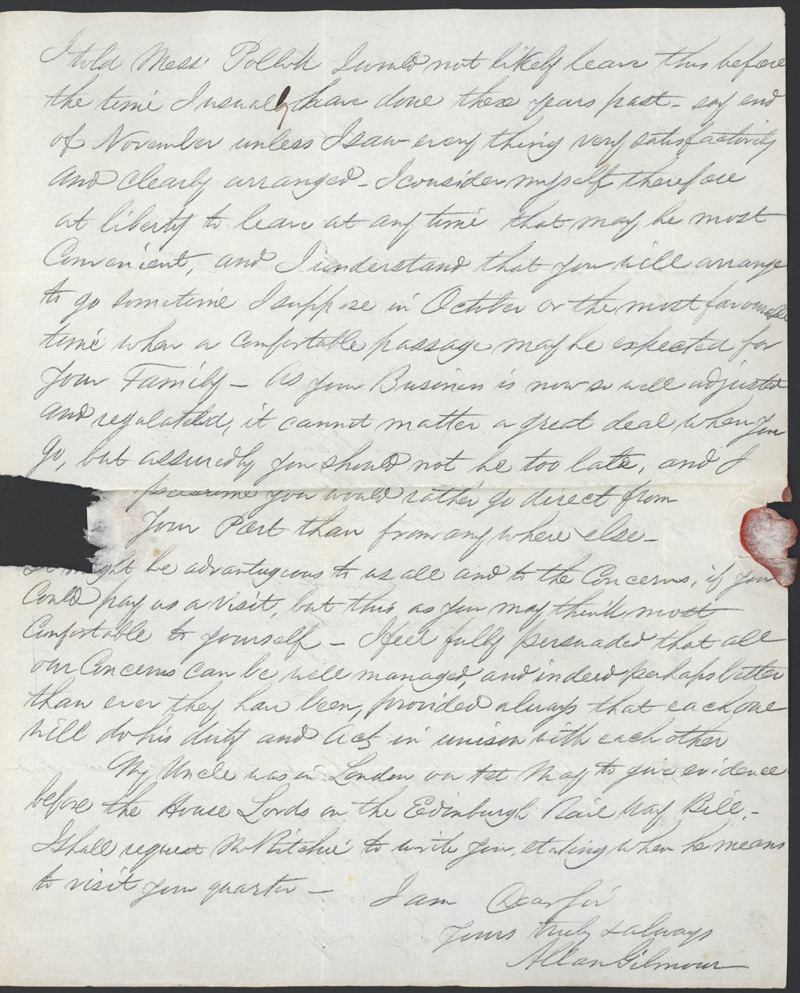 I told Messrs Pollok I would not likely leave this before
the time I usually have done these years past - say end
of November unless I saw every thing very satisfactorily
and clearly arranged - I consider myself therefore
at liberty to leave at any time that may be most
Convenient, and I understand that you will arrange
to go sometime I suppose in October or the most favourable
time when a comfortable passage may be expected for
Your Family - As your Business is now so well adjusted
and regulated, it cannot matter a great deal when you
go, but assuredly you should not be too late, and I
presume you would rather go direct from
Your Port than from any where else -
It might be advantageous to us all and to the Concerns, if you
Could pay us a visit, but this as you may think most
Comfortable to yourself - I feel fully persuaded that all
our Concerns can be well managed, and indeed perhaps better
than ever they have been, provided always that each one
will do his duty and act in unison with each other
My Uncle was in London on 1st May to give evidence
before the House Lords on the Edinburgh Rail Way Bill, -
I shall request Mr Ritchie to write you, stating when he means
to visit your quarter - I am Dear Sir
Yours truly & always
Allan Gilmour